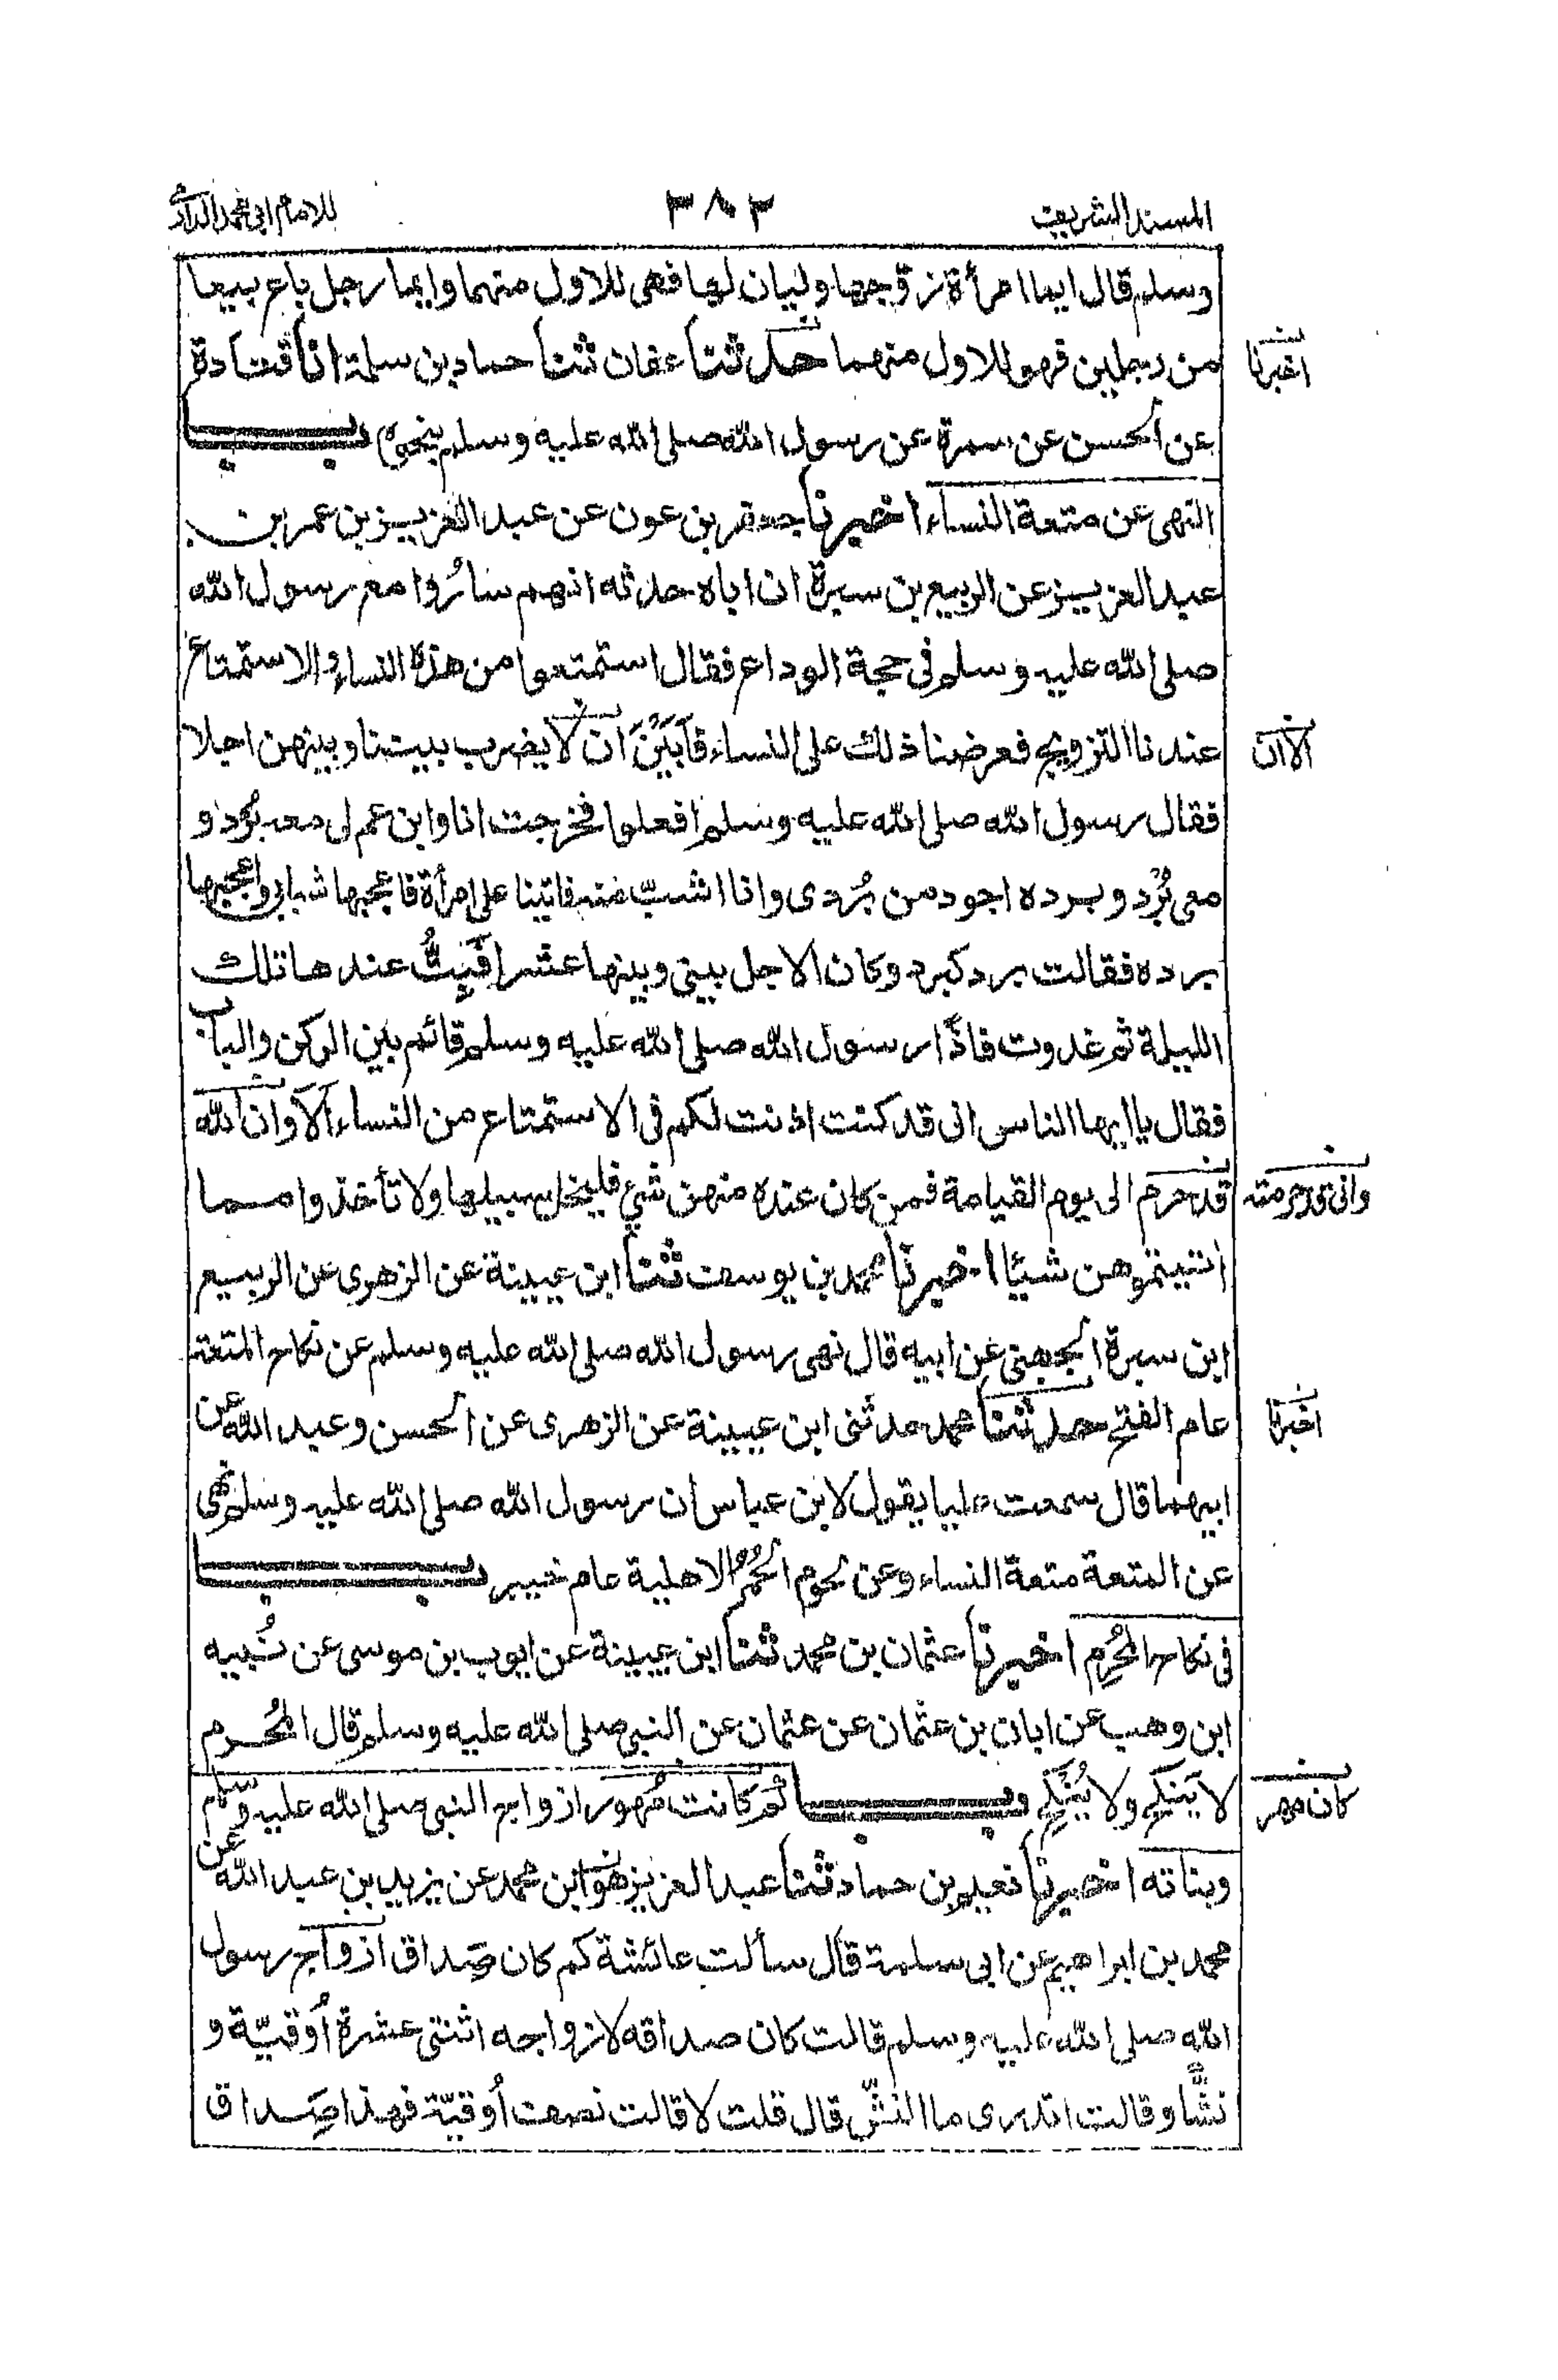 المسند الشريف ٣٨٢ للامام ابى محمد الدارمى
وسلم قال ايما امرأة زوجها وليان لها فهى للاول منهما وايما رجل باع بيعا
من رجلين فهو للاول منهما حدثنا عفان ثنا حماد بن سلمة انا قتادة
اخبرنا
عن الحسن عن سمرة عن رسول الله صلى الله عليه وسلم بنحوه باب
النهى عن متعة النساء اخبرنا جعفر بن عون عن عبد العزيز بن عمر بن
عبد العزيز عن الربيع بن سبرة ان اباه حدثه انهم ساروا مع رسول الله
صلى الله عليه وسلم فى حجة الوداع فقال استمتعوا من هذه النساء والاستمتاع
عندنا التزويج فعرضنا ذلك على النساء فَاَبَيْنَ ان لا يضرب بيننا وبينهن اجلا
الا ان
فقال رسول الله صلى الله عليه وسلم افعلوا فخرجت انا وابن عم لى معه بُرد و
معى بُرْد وبرده اجود من بُردى وانا اشبّ منه فاتينا على امرأة فاعجبها شبابى واعجبها
برده فقالت برد كبرد وكان الاجل بينى وبينها عشرا فَبِتُّ عندها تلك
الليلة ثم غدوت فاذا رسول الله صلى الله عليه وسلم قائم بين الركن والباب
فقال يا ايها الناس انى قد كنت اذنت لكم فى الاستمتاع من النساء اَلَا وَان الله
قد حرم الى يوم القيامة فمن كان عنده منهن شئ فليخل سبيلها ولا تأخذوا مما
وانى قد حرمته
اتيتموهن شيئا اخبرنا محمد بن يوسف ثنا ابن عيينة عن الزهرى عن الربيع
ابن سبرة الجهنى عن ابيه قال نهى رسول الله صلى الله عليه وسلم عن نكاح المتعة
عام الفتح حدثنا محمد حدثنى ابن عيينة عن الزهرى عن الحسن وعبد الله عن
اخبرنا
ابيهما قال سمعت عليا يقول لابن عباس ان رسول الله صلى الله عليه وسلم نهى
عن المتعة متعة النساء وعن لحوم الحُمُر الاهلية عام خيبر باب
فى نكاح المُحْرِم اخبرنا عثمان بن محمد ثنا ابن عيينة عن ايوب بن موسى عن نُبيه
ابن وهب عن ابان بن عثمان عن عثمان عن النبى صلى الله عليه وسلم قال المُحرم
لا يَنكِح ولا يُنكِح باب كم كانت مُهور ازواج النبى صلى الله عليه وسلم
كان مهر
وبناته اخبرنا نعيم بن حماد ثنا عبد العزيز هو ابن محمد عن يزيد بن عبد الله عن
محمد بن ابراهيم عن ابى سلمة قال سألت عائشة كم كان صداق ازواج رسول
الله صلى الله عليه وسلم قالت كان صداقه لازواجه اثنتى عشرة أُوقيّة و
نشًّا وقالت اتدرى ما النشّ قال قلت لا قالت نصف أُوقيّة فهذا صداق